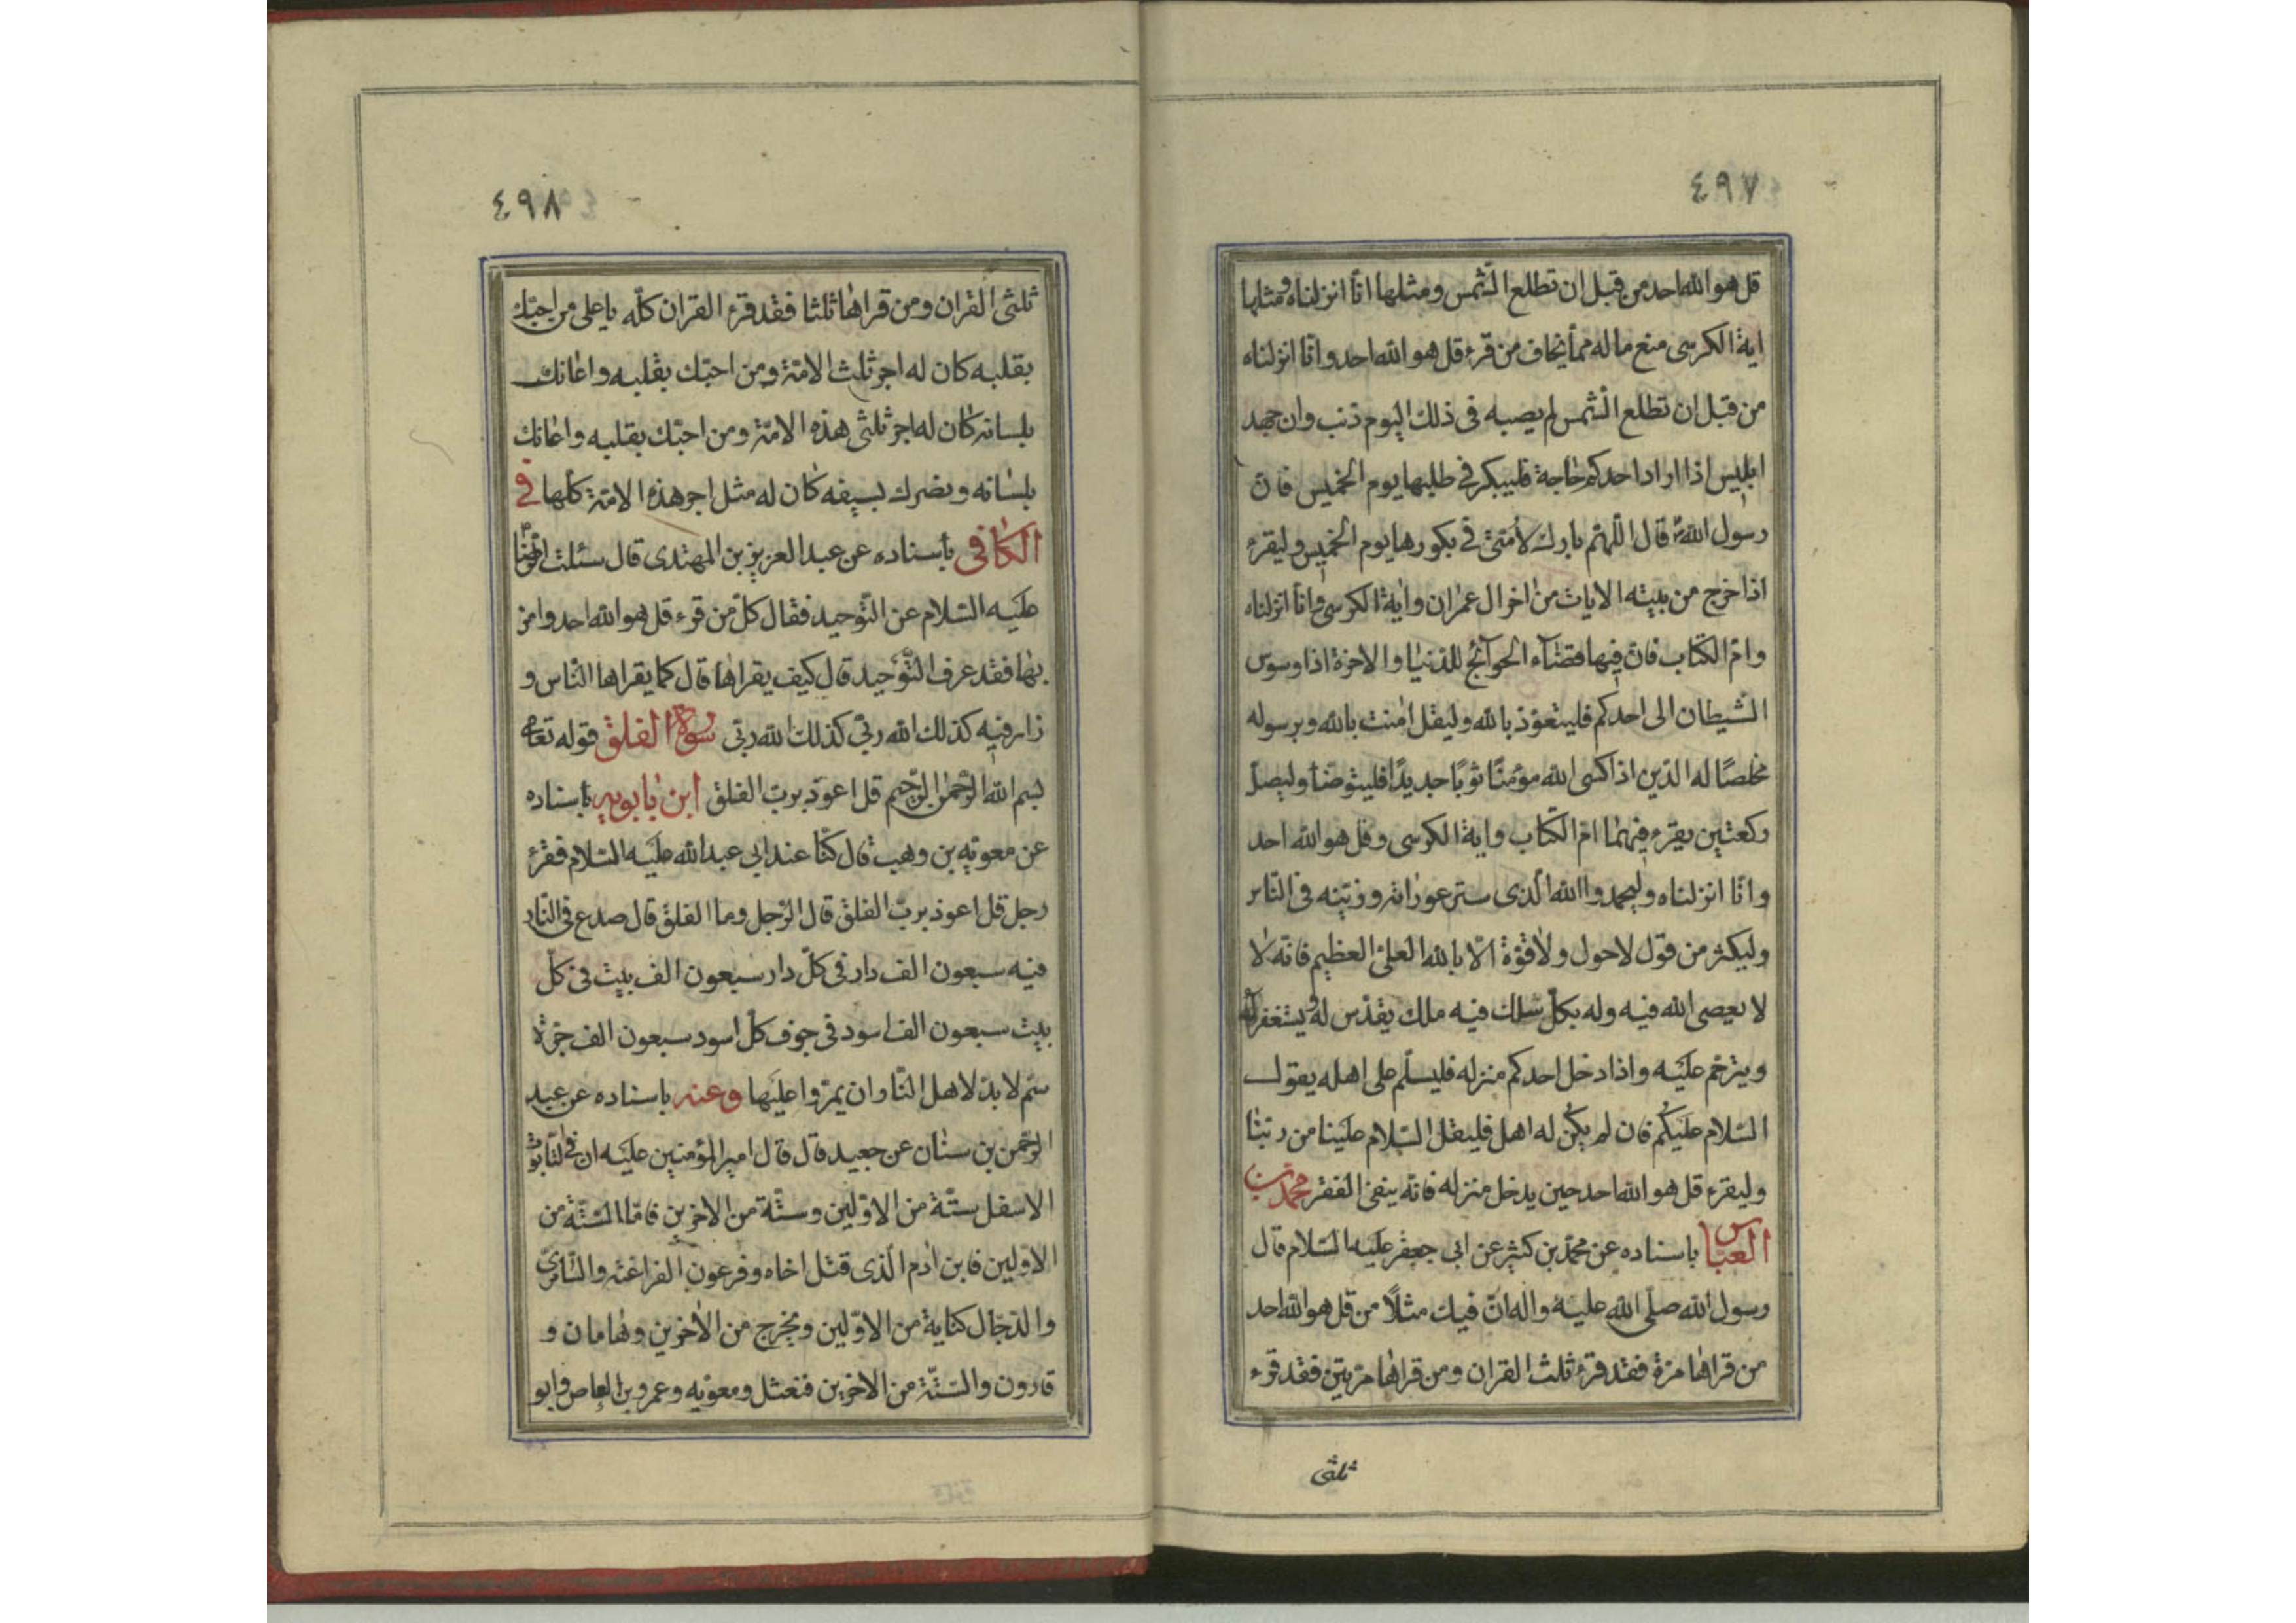 ٤٩٧
قل هو الله احد من قبل ان تطلع الشمس ومثلها انا انزلناه ومثلها
اية الكرسى منع ماله مما يخاف من قرء قل هو الله احد وانا انزلناه
من قبل ان تطلع الشمس لم يصبه فى ذلك اليوم ذنب وان جهد
ابليس اذا اراد احدكم حاجة فليبكر فى طلبها يوم الخميس فان
رسول الله قال اللهم بارك لامتى فى بكورها يوم الخميس وليقرء
اذا خرج من بيته الايات من اخر ال عمران واية الكرسى وانا انزلناه
وام الكتاب فان فيها قضاء الحوائج للدنيا والاخرة اذا وسوس
الشيطان الى احدكم فليتعوذ بالله وليقل امنت بالله وبرسوله
مخلصًا له الدين اذا كسى الله مؤمنًا ثوبًا جديدًا فليتوضأ وليصل
ركعتين يقرء فيهما ام الكتاب واية الكرسى وقل هو الله احد
وانا انزلناه وليحمدوا الله الذى ستر عوراته وزينه فى الناس
وليكثر من قول لاحول ولاقوة الا بالله العلى العظيم فانه لا
لا يعصى الله فيه وله بكل سلك فيه ملك يقدس له ويستغفر له
ويترحم عليه واذا دخل احدكم منزله فليسلم على اهله يقول
السلام عليكم فان لم يكن له اهل فليقل السلام علينا من ربنا
وليقرء قل هو الله احد حين يدخل منزله فانه ينفى الفقر محمد بن
العباس باسناده عن محمد بن كثير عن ابى جعفر عليه السلام قال
رسول الله صلى الله عليه واله ان فيك مثلاً من قل هو الله احد
من قراها مرة فقد قرء ثلث القران ومن قراها مرتين فقد قرء
ثلثى
٤٩٨
ثلثى القران ومن قراها ثلثا فقد قرء القران كله يا على من احبك
بقلبه كان له اجر ثلث الامة ومن احبك بقلبه واعانك
بلسانه كان له اجر ثلثى هذه الامة ومن احبك بقلبه واعانك
بلسانه ونصرك بسيفه كان له مثل اجر هذه الامة كلها فى
الكافى باسناده عن عبد العزيز بن المهتدى قال سئلت الرضا
عليه السلام عن التوحيد فقال كل من قرء قل هو الله احد وامن
بها فقد عرف التوحيد قال كيف يقراها قال كما يقراها الناس و
زاد فيه كذلك الله ربى كذلك الله ربى سورة الفلق قوله تعالى
بسم الله الرحمن الرحيم قل اعوذ برب الفلق ابن بابويه باسناده
عن معوية بن وهب قال كنا عند ابى عبد الله عليه السلام فقرء
رجل قل اعوذ برب الفلق قال الرجل وما الفلق قال صدع فى النار
فيه سبعون الف دار فى كل دار سبعون الف بيت فى كل
بيت سبعون الف اسود فى جوف كل اسود سبعون الف جرة
سم لا بد لاهل النار ان يمروا عليها وعنه باسناده عن عبد
الرحمن بن سنان عن جعيد قال قال امير المؤمنين عليه ان فى التابوت
الاسفل ستة من الاولين وستة من الاخرين فاما الستة من
الاولين فابن ادم الذى قتل اخاه وفرعون الفراعنة والسامرى
والدجال كتابة من الاولين ويخرج من الاخرين وهامان و
قارون والستة من الاخرين فنعثل ومعوية وعمرو بن العاص وابو